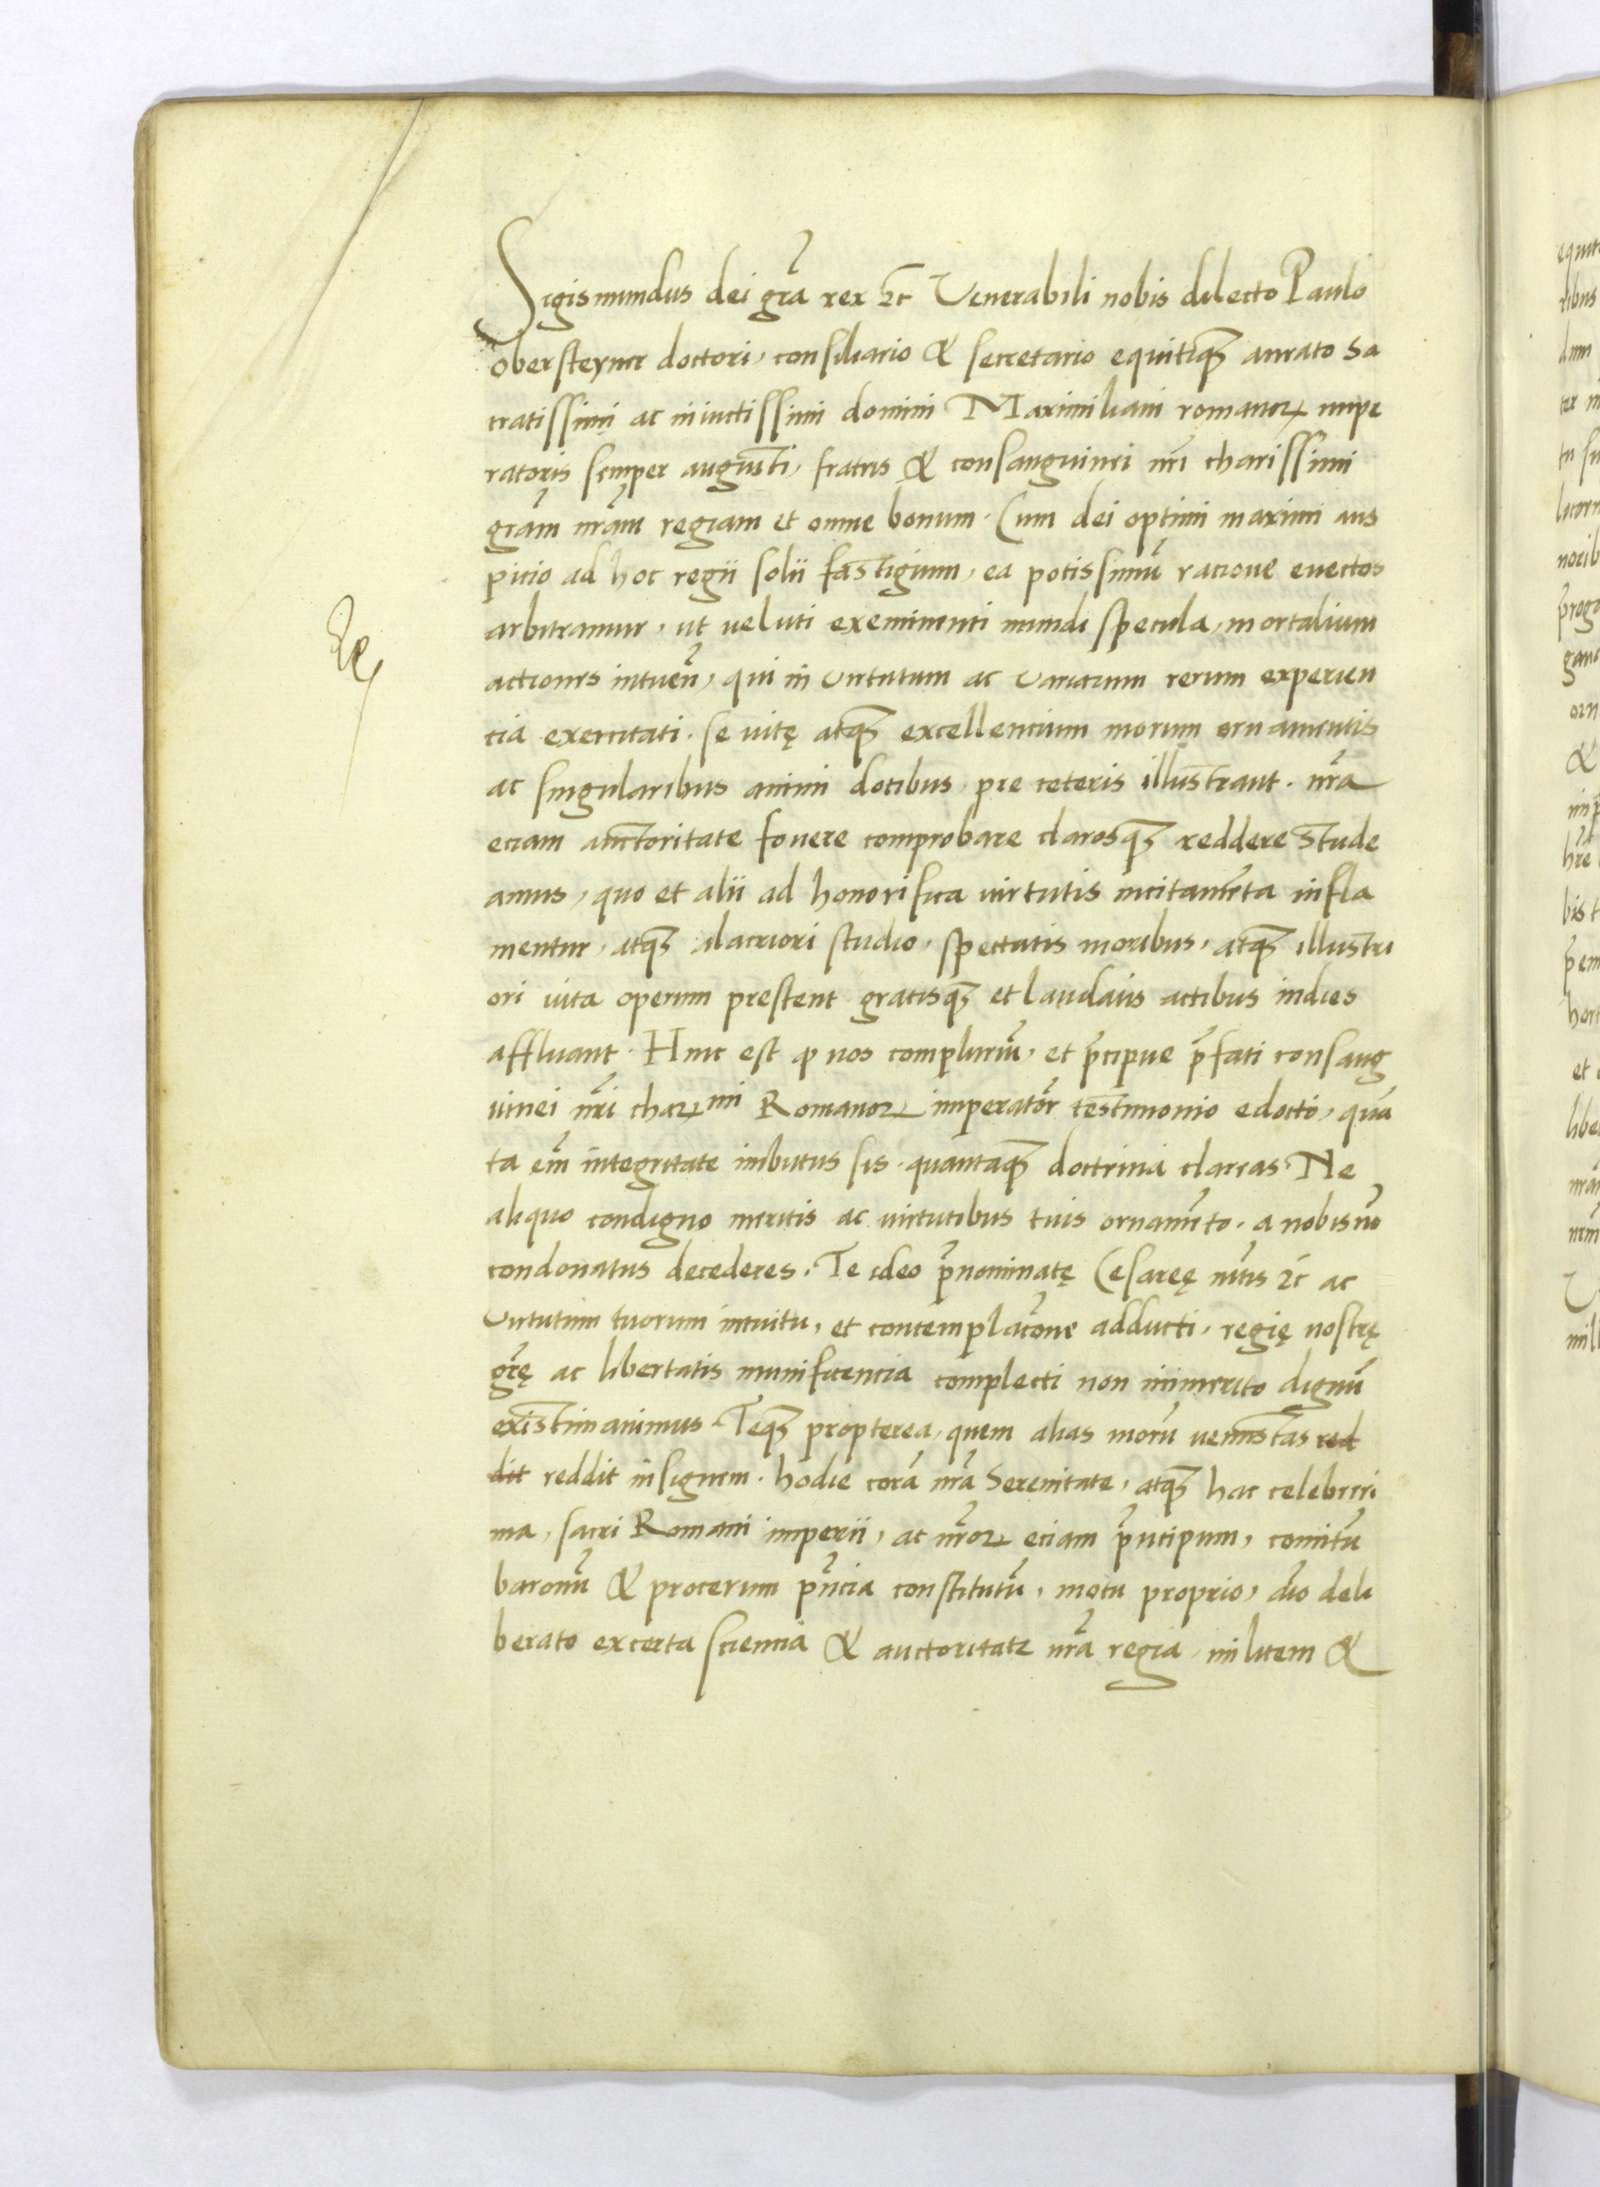 Sigismundus dei gra rex etc Venerabili nobis dilecto Paulo
obersteyner doctori, consiliario & secretario equitiq3 aurato Sa
cratissimi ac inuictissimi domini Maximiliani romanor̃ impe
ratoris semper augusti, fratris & consanguinei nr̃i charissimi
gram nrãm regiam et omne bonum. Cum dei optimi maximi aus
picio ad hoc regii solii fastigium, ea potissimũ racione euectos
arbitramur, ut ueluti ex eminenti mundi specula, mortalium
actiones intuen̄, qui in virtutum ac variarum rerum experien
cia exercitati. se uitę atq3 excellencium morum ornamentis
ac singularibus animi dotibus pre ceteris illustrant. nr̃a
eciam auctoritate fouere comprobare clarosq3 reddere Stude
amus, quo et alii ad honorifica uirtutis incitamẽta infla
mentur, atq3 alacriori studio, spectatis moribus, atq3 illustri
ori uita operam prestent gratisq3 et laudatis actibus indies
affluant. Hinc est ꝙ nos complurium̃, et p̃cipue p̃fati consang
uinei nr̃i char̃mi Romanor̃ imperator̃ testimonio edocti, quã
ta em̃ integritate imbutus sis. quantaq3 doctrina clareas. Ne
aliquo condigno meritis ac uirtutibus tuis ornamẽto. a nobis nõ
condonatus decederes. Te ideo p̃nominatę Cesareę mt̃is etc ac
virtutum tuorum intuitu, et contemplac̃one adducti, regię nostrę
gr̃ę ac libertatis munificencia complecti non immerito dignũ
existimauimus. Teq3 propterea, quem alias morũ uenustas red
dit reddit insignem. hodie corã nr̃a Serenitate, atq3 hac celeberri
ma, sacri Romani imperii, ac nr̃or̃ eciam p̃ncipum, comitũ
baronũ & procerum pñcia constitutũ, motu proprio, aĩo deli
berato ex certa sciencia & auctoritate nr̃a regia, militem &